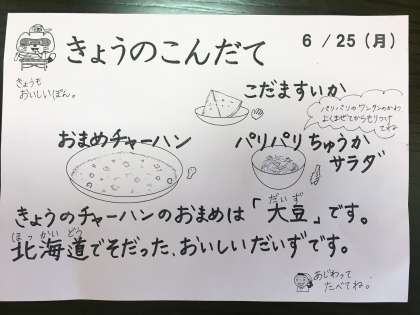 きょうのこんだて
6/25(月)
きょうも
おいしいぽん。
こだますいか
パリパリのワンタンのかわ
よくまぜてからもりつけ
てね
おまめチャーハン
パリパリちゅうか
サラダ
きょうのチャーハンのおまめは「大豆」です。
だいず
北海道でそだった、おいしいだいずです。
ほっかいどう
あじわって
たべてね。